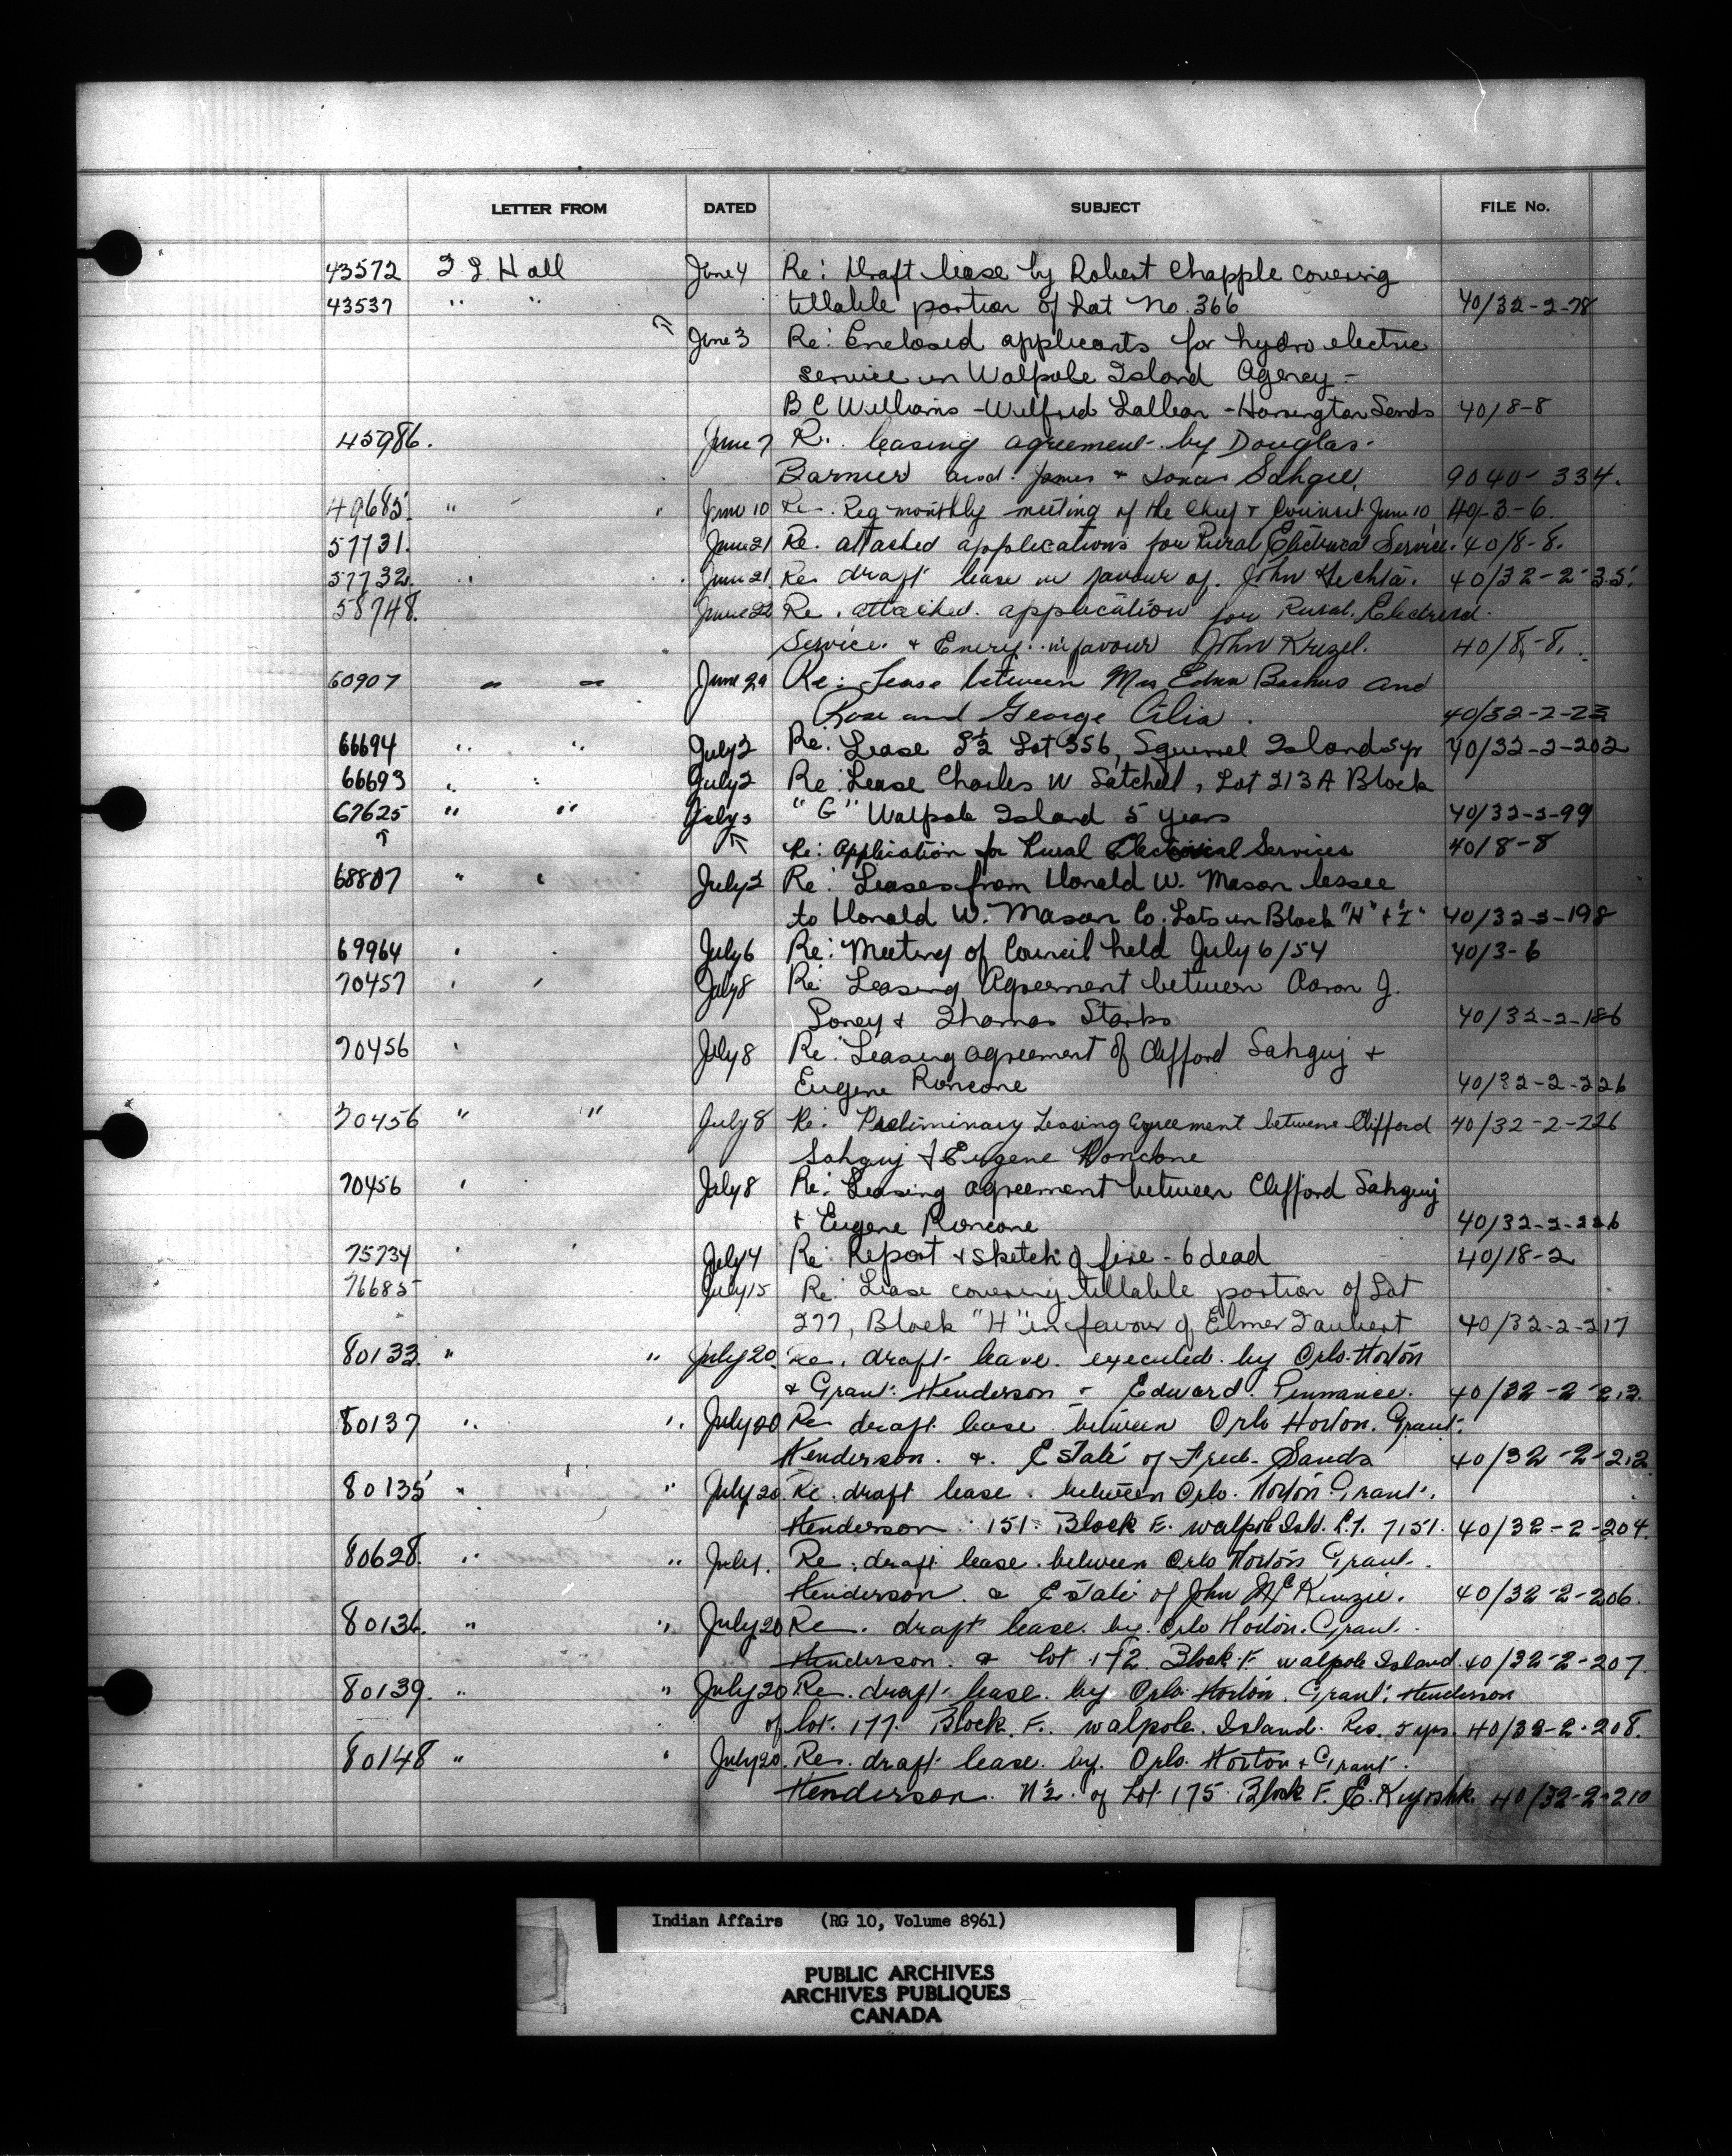 LETTER FROM DATED SUBJECT FILE No.
43572 J. J. Hall June 4 Re: Draft lease by Robert Chapple covering
43537 " " tillable portion of Lot No. 366 40/32-2-78
June 3 Re: Enclosed applicants for hydro electric
service in Walpole Island Agency -
B C Williams - Wilfred - Harrington Sands 40/8-8
45986. June 7 Re. leasing agreement by Douglas
and James + Sahgee. 9040-334.
49685. " " June 10 Re. Reg monthly meeting of the Chief + Council June 10 40-3-6.
57731. June 21 Re. attached applications for Rural Electrical Service. 40/8-8.
57732. " June 21 Re draft lease in favour of. John Hechta. 40/32-2-35.
58748. June 22 Re. attached. application for Rural. Electrical.
Service. + in favour John Krizel. 40/8-8.
60907 " " June 29 Re: Lease between Mrs Edna Bashus and
Rose and George Cilia. 40/32-2-23
66694 " " July 2 Re: Lease S½ Lot 356, Squirrel Island 5yr 40/32-2-202
66693 " " July 2 Re: Lease Charles W Satchell, Lot 213 A Block
67625 " " July 3 "G" Walpole Island 5 years 40/32-2-99
↑ ↖ Re: Application for Rural Electrical Services 40/8-8
68807 " " July 2 Re: Leases from Donald W. Mason lessee
to Donald W. Mason Co. Lots in Block "H" + "I" 40/32-2-198
69964 " " July 6 Re: Meeting of Council held July 6/54 40/3-6
70457 " " July 8 Re: Leasing Agreement between Aaron J.
Soney + Thomas Starks 40/32-2-186
70456 " July 8 Re: Leasing agreement of Clifford Sahguj +
Eugene Roncone 40/32-2-226
70456 " " July 8 Re: Preliminary Leasing Agreement betwene Clifford 40/32-2-226
Sahguj + Eugene Roncone
70456 " July 8 Re: Leasing agreement between Clifford Sahguj
+ Eugene Roncone 40/32-2-226
75734 " " July 14 Re: Report + sketch of fire - 6 dead 40/18-2
76685 July 15 Re: Lease covering tillable portion of Lot
277, Block "H" in favour of Elmer Taubert 40/32-2-217
80133. " " July 20. Re. draft lease. executed by Orlo Horton
+ Grant Henderson + Edward. Pennance. 40/32-2-213.
80137 " " July 20 Re draft lease between Orlo Horton. Grant.
Henderson. &. Estate of Fred. Sands 40/32-2-212
80135 " " July 20 Re. draft lease. between Orlo. Horton. Grant.
Henderson 151. Block E. Walpole Isld. L.T. 7151. 40/32-2-204.
80628. " " July 1. Re. draft lease. between Orlo Horton Grant.
Henderson. & Estate of John McKenzie. 40/32-2-206.
80136. " " July 20 Re. draft lease. by. Orlo Horton. Grant.
Henderson. & lot 172 Block F Walpole Island. 40/32-2-207.
80139. " " July 20 Re. draft lease. by Orlo Horton. Grant. Henderson
of lot. 177. Block. F. Walpole. Island. Res. 5 yrs. 40/32-2-208.
80148 " " July 20. Re. draft lease. by. Orlo. Horton + Grant.
Henderson. N½. of Lot 175 Block F. E. Kiyoshk. 40/32-2-210
Indian Affairs (RG 10, Volume 8961)
PUBLIC ARCHIVES
ARCHIVES PUBLIQUES
CANADA